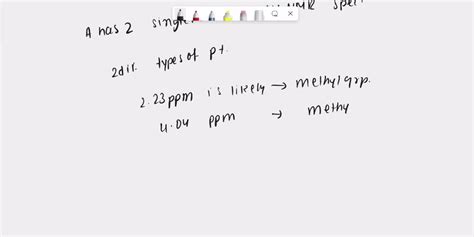 A has 2 singl NMR spec
2dif. types of pt.
2.23ppm is likely → methyl grp.
4.04 ppm → methy